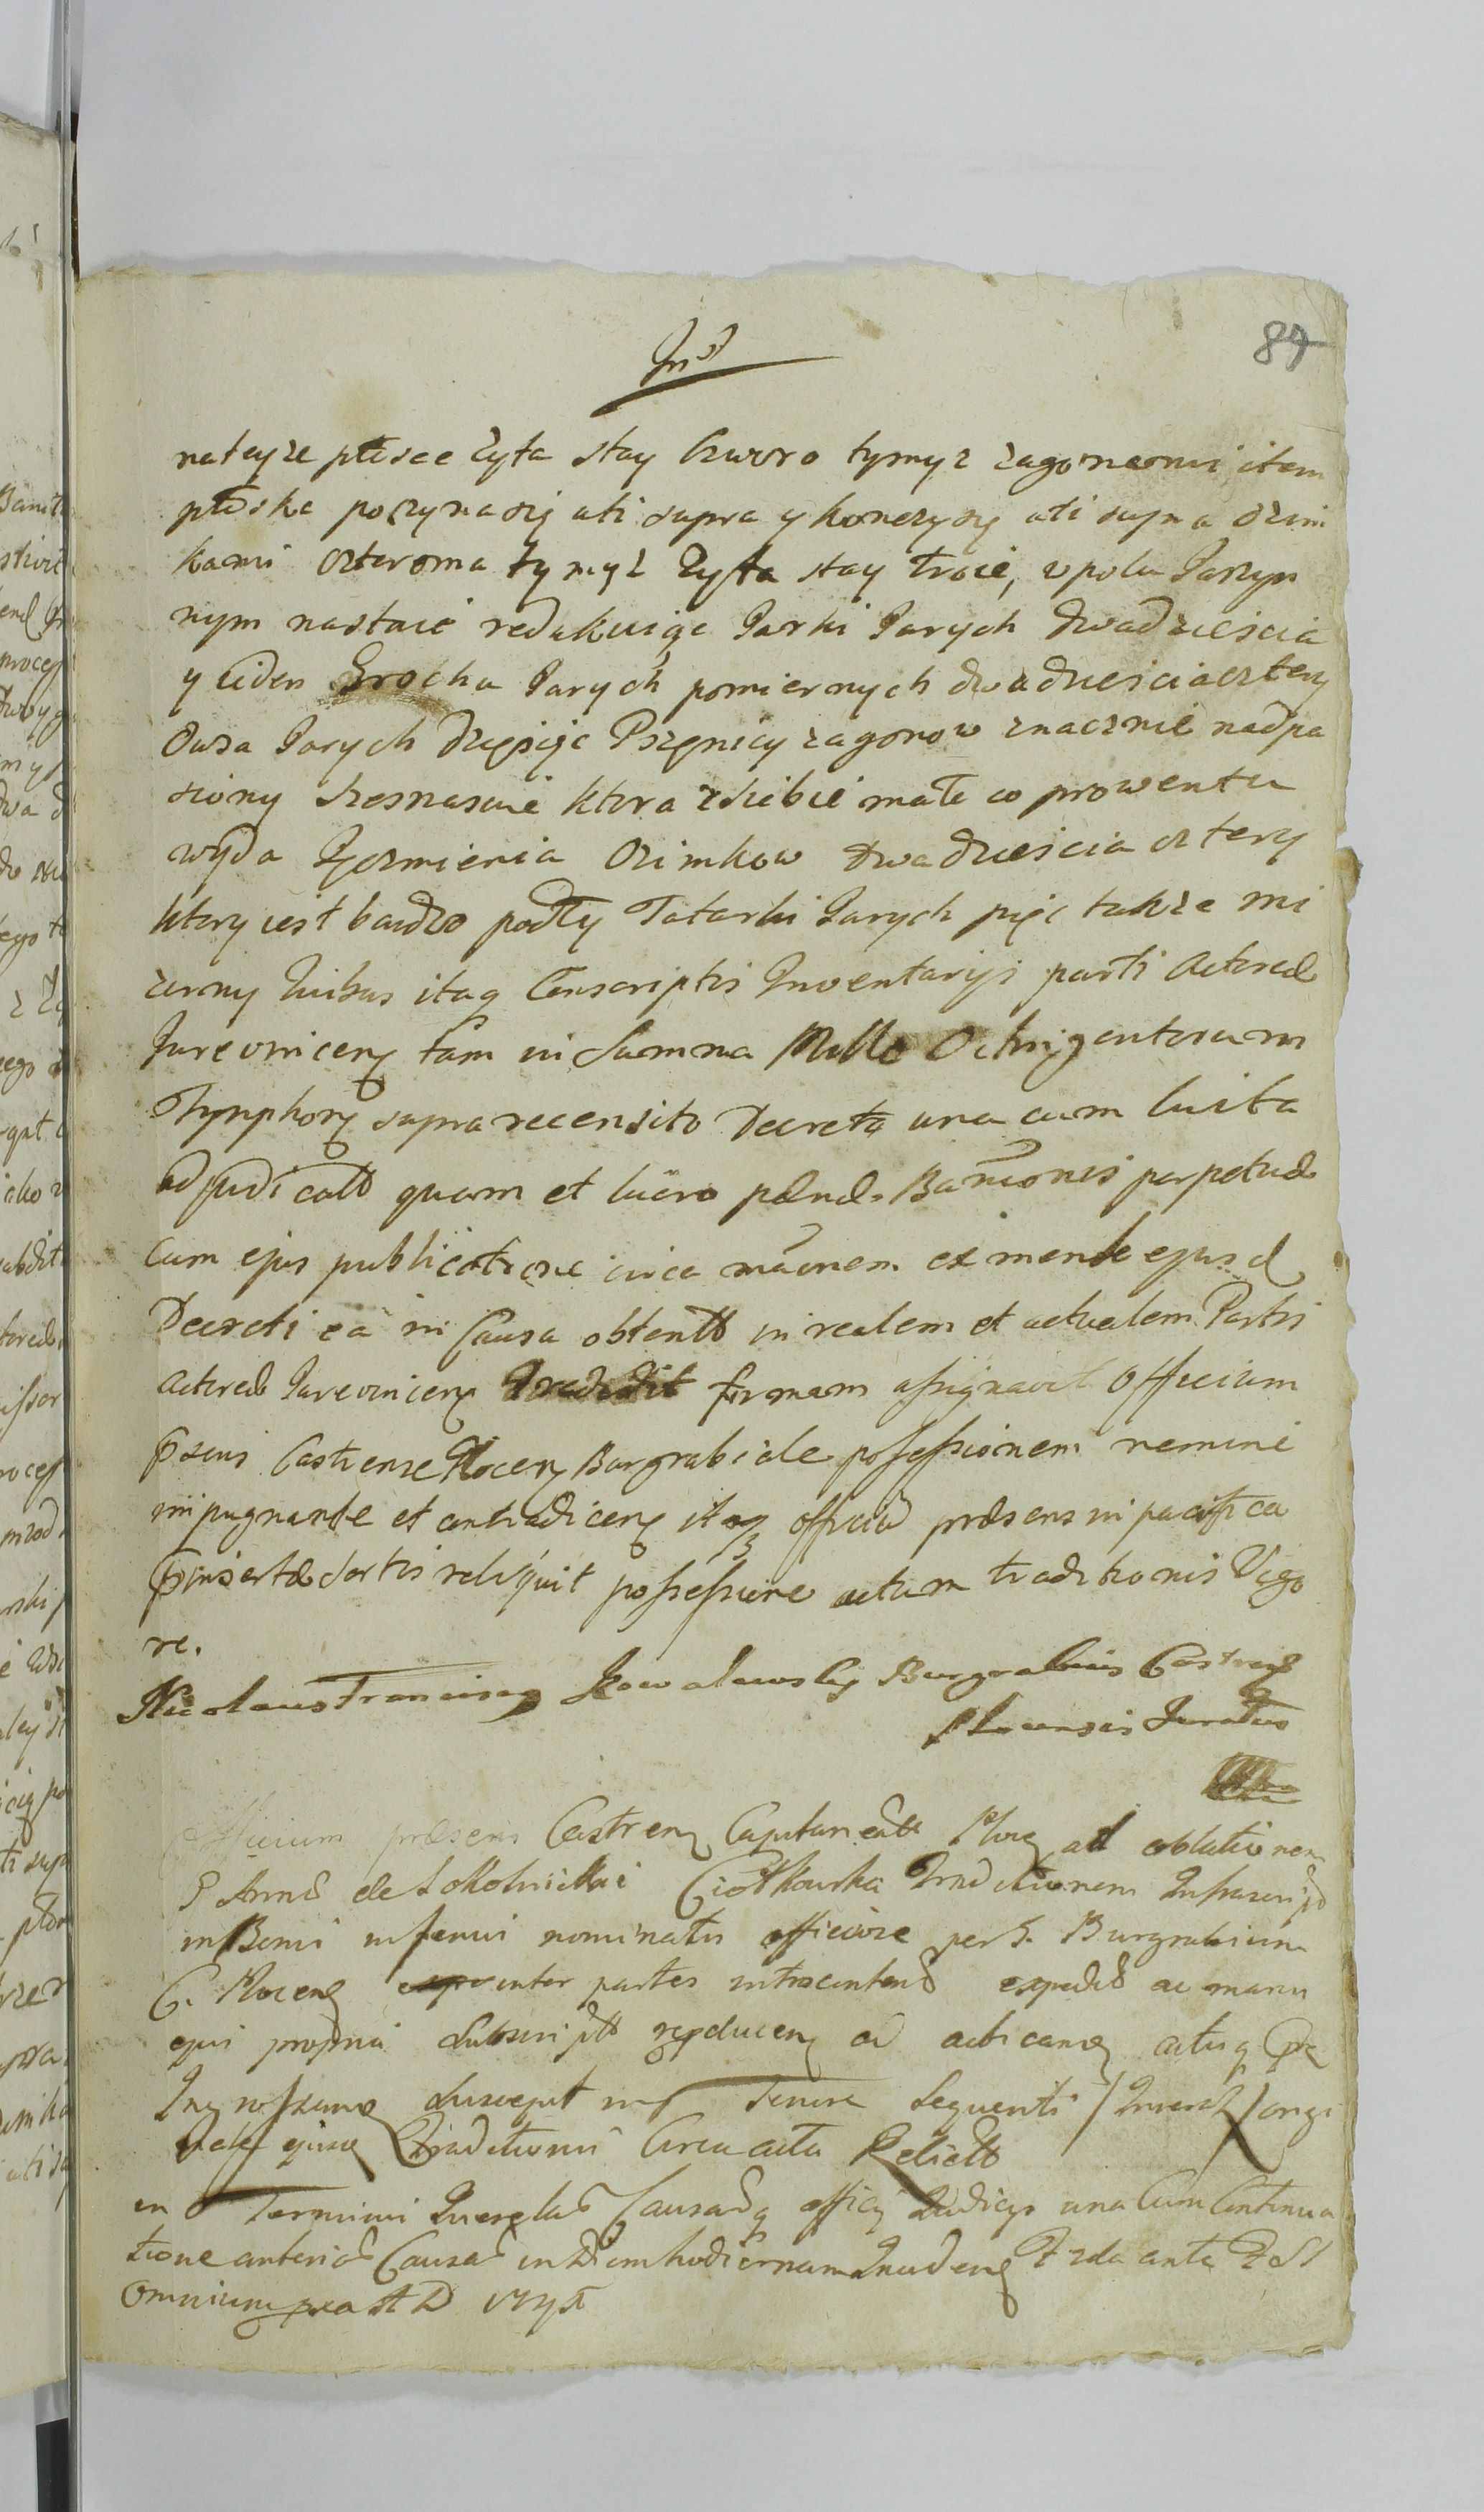 87
nateyze płosce zyta stay czworo tymyz zagonami item
płoska poczyna się uti supra y konczy się uti supra ozim
kami czteroma tymyz zyta stay troie, w polu Jarzyn
nym nastaie redukuiąc Jarki Jarych dwadziescia
y ieden Grochu Jarych pomiernych dwadziescia cztery
Owsa Jarych dziesięc Pszenicy zagonow znacznie nadpa
siony szesnascie ktora z siebie mało co prowentu
wyda Jęczmienia Ozimkow dwadziescia cztery
ktory iest bardzo podły Tatarki Jarych pięc takze mi
zerny quibus itaq Conscriptis Inventarijs parti Actoreae
Jurevincen tam in Summa Mille Octingentorum
Thynphor supra recensito Decreto una cum luita
adjudicatt quam et lucro poenae Bannionis perpetuae
cum ejus publicatione circa ex mente ejusd
Decreti ea in Causa obtentt in realem et actualem Partis
Actoreae Jurevincen Tradidit formam assignavit Officium
psens Castrense Plocen Burgrabiale possessionem nemine
impugnante et contradicen itaq officiu praesens in pacifica
insertae sortis reliquit possessione actum traditionis Vigo
re.
Nicolaus Franciscus Kowalewsky Burgrabius Castren
Plocensis Juratus
Officium praesens Castren Capitaneatt Ploc ad oblationem
Annae de Sokolnickie Ciołkowska Traditionem Infrascript
in Bonis inferius nominatis officiose per G. Burgrabium
C. Plocen inter partes introcontent expedit ac manu
ejus propria Subscriptt reproducen ad acticand actisq
Ingrossand Suscepit Tenore Sequenti
ejusd Traditionis Circa acta Relictt
Termini Querelar Causarq officy Judicys una Cum Continua
tione anterior Causar in Diem hodiernam Inciden ante
Omnium